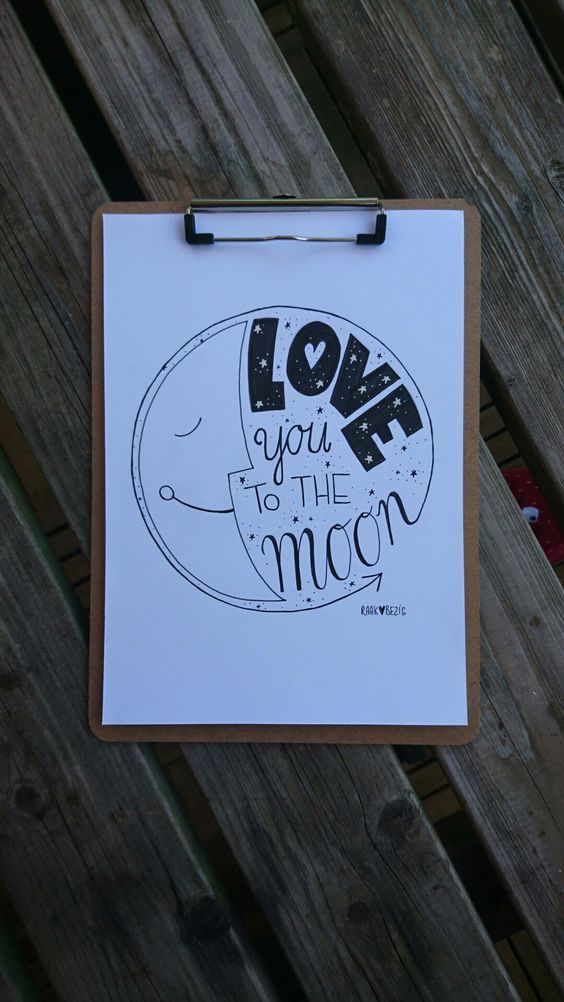 LOVE
you
TO THE
moon
RAAK♥BEZIG